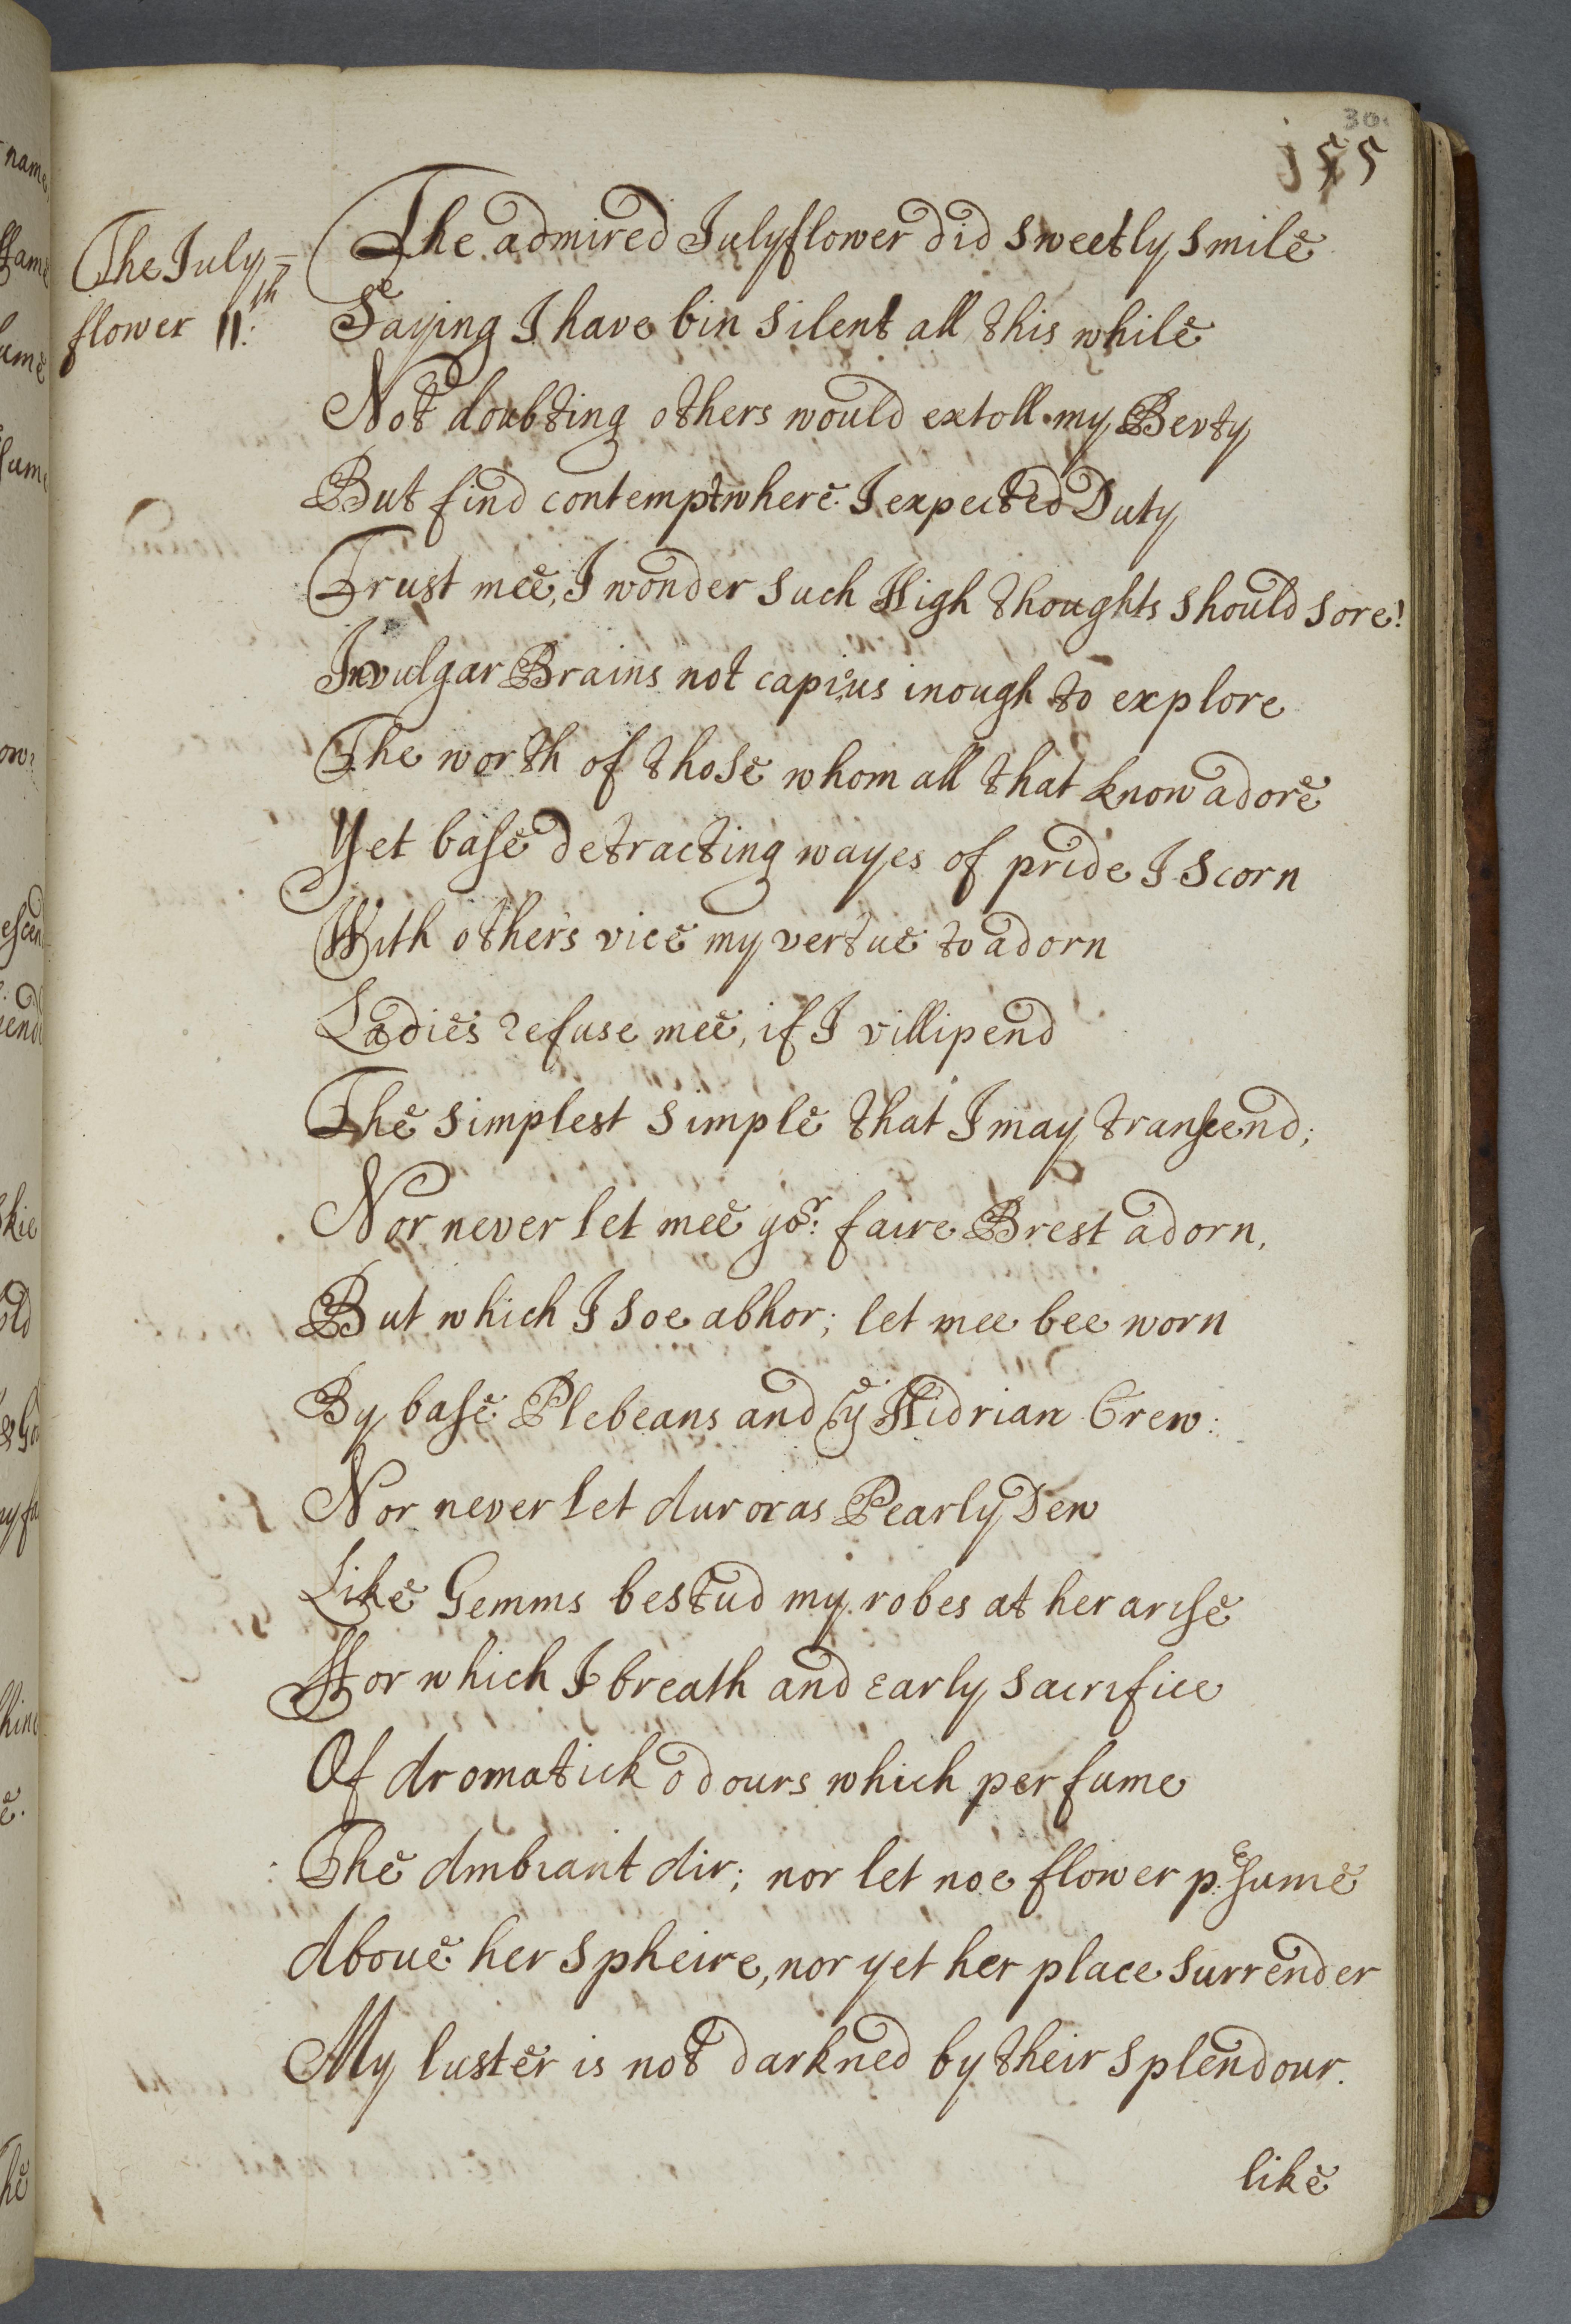 30.
155
The July=
flower 11:th
The admired Julyflower did sweetly smile
Saying I have bin silent all this while
Not doubting others would extoll my Bevty
But find contempt where I expected Duty
Trust mee, I wonder such High thoughts should sore!
In vulgar Brains not capius inough to explore
The worth of those whom all that know adore
Yet base detracting wayes of pride I scorn
With others vice my vertue to adorn
Ladies refuse mee, if I villipend
The simplest simple that I may transcend;
Nor never let mee yor: faire Brest adorn,
But which I soe abhor; let mee bee worn
By base Plebeans and ye Hidrian Crew:
Nor never let Auroras Pearly Dew
Like Gemms bestud my robes at her arise
For which I breath and early sacrifice
Of Aromatick odours which perfume
The Ambiant Air; nor let noe flower p:esume
Aboue her spheire, nor yet her place surrender
My luster is not darkned by their splendour.
like